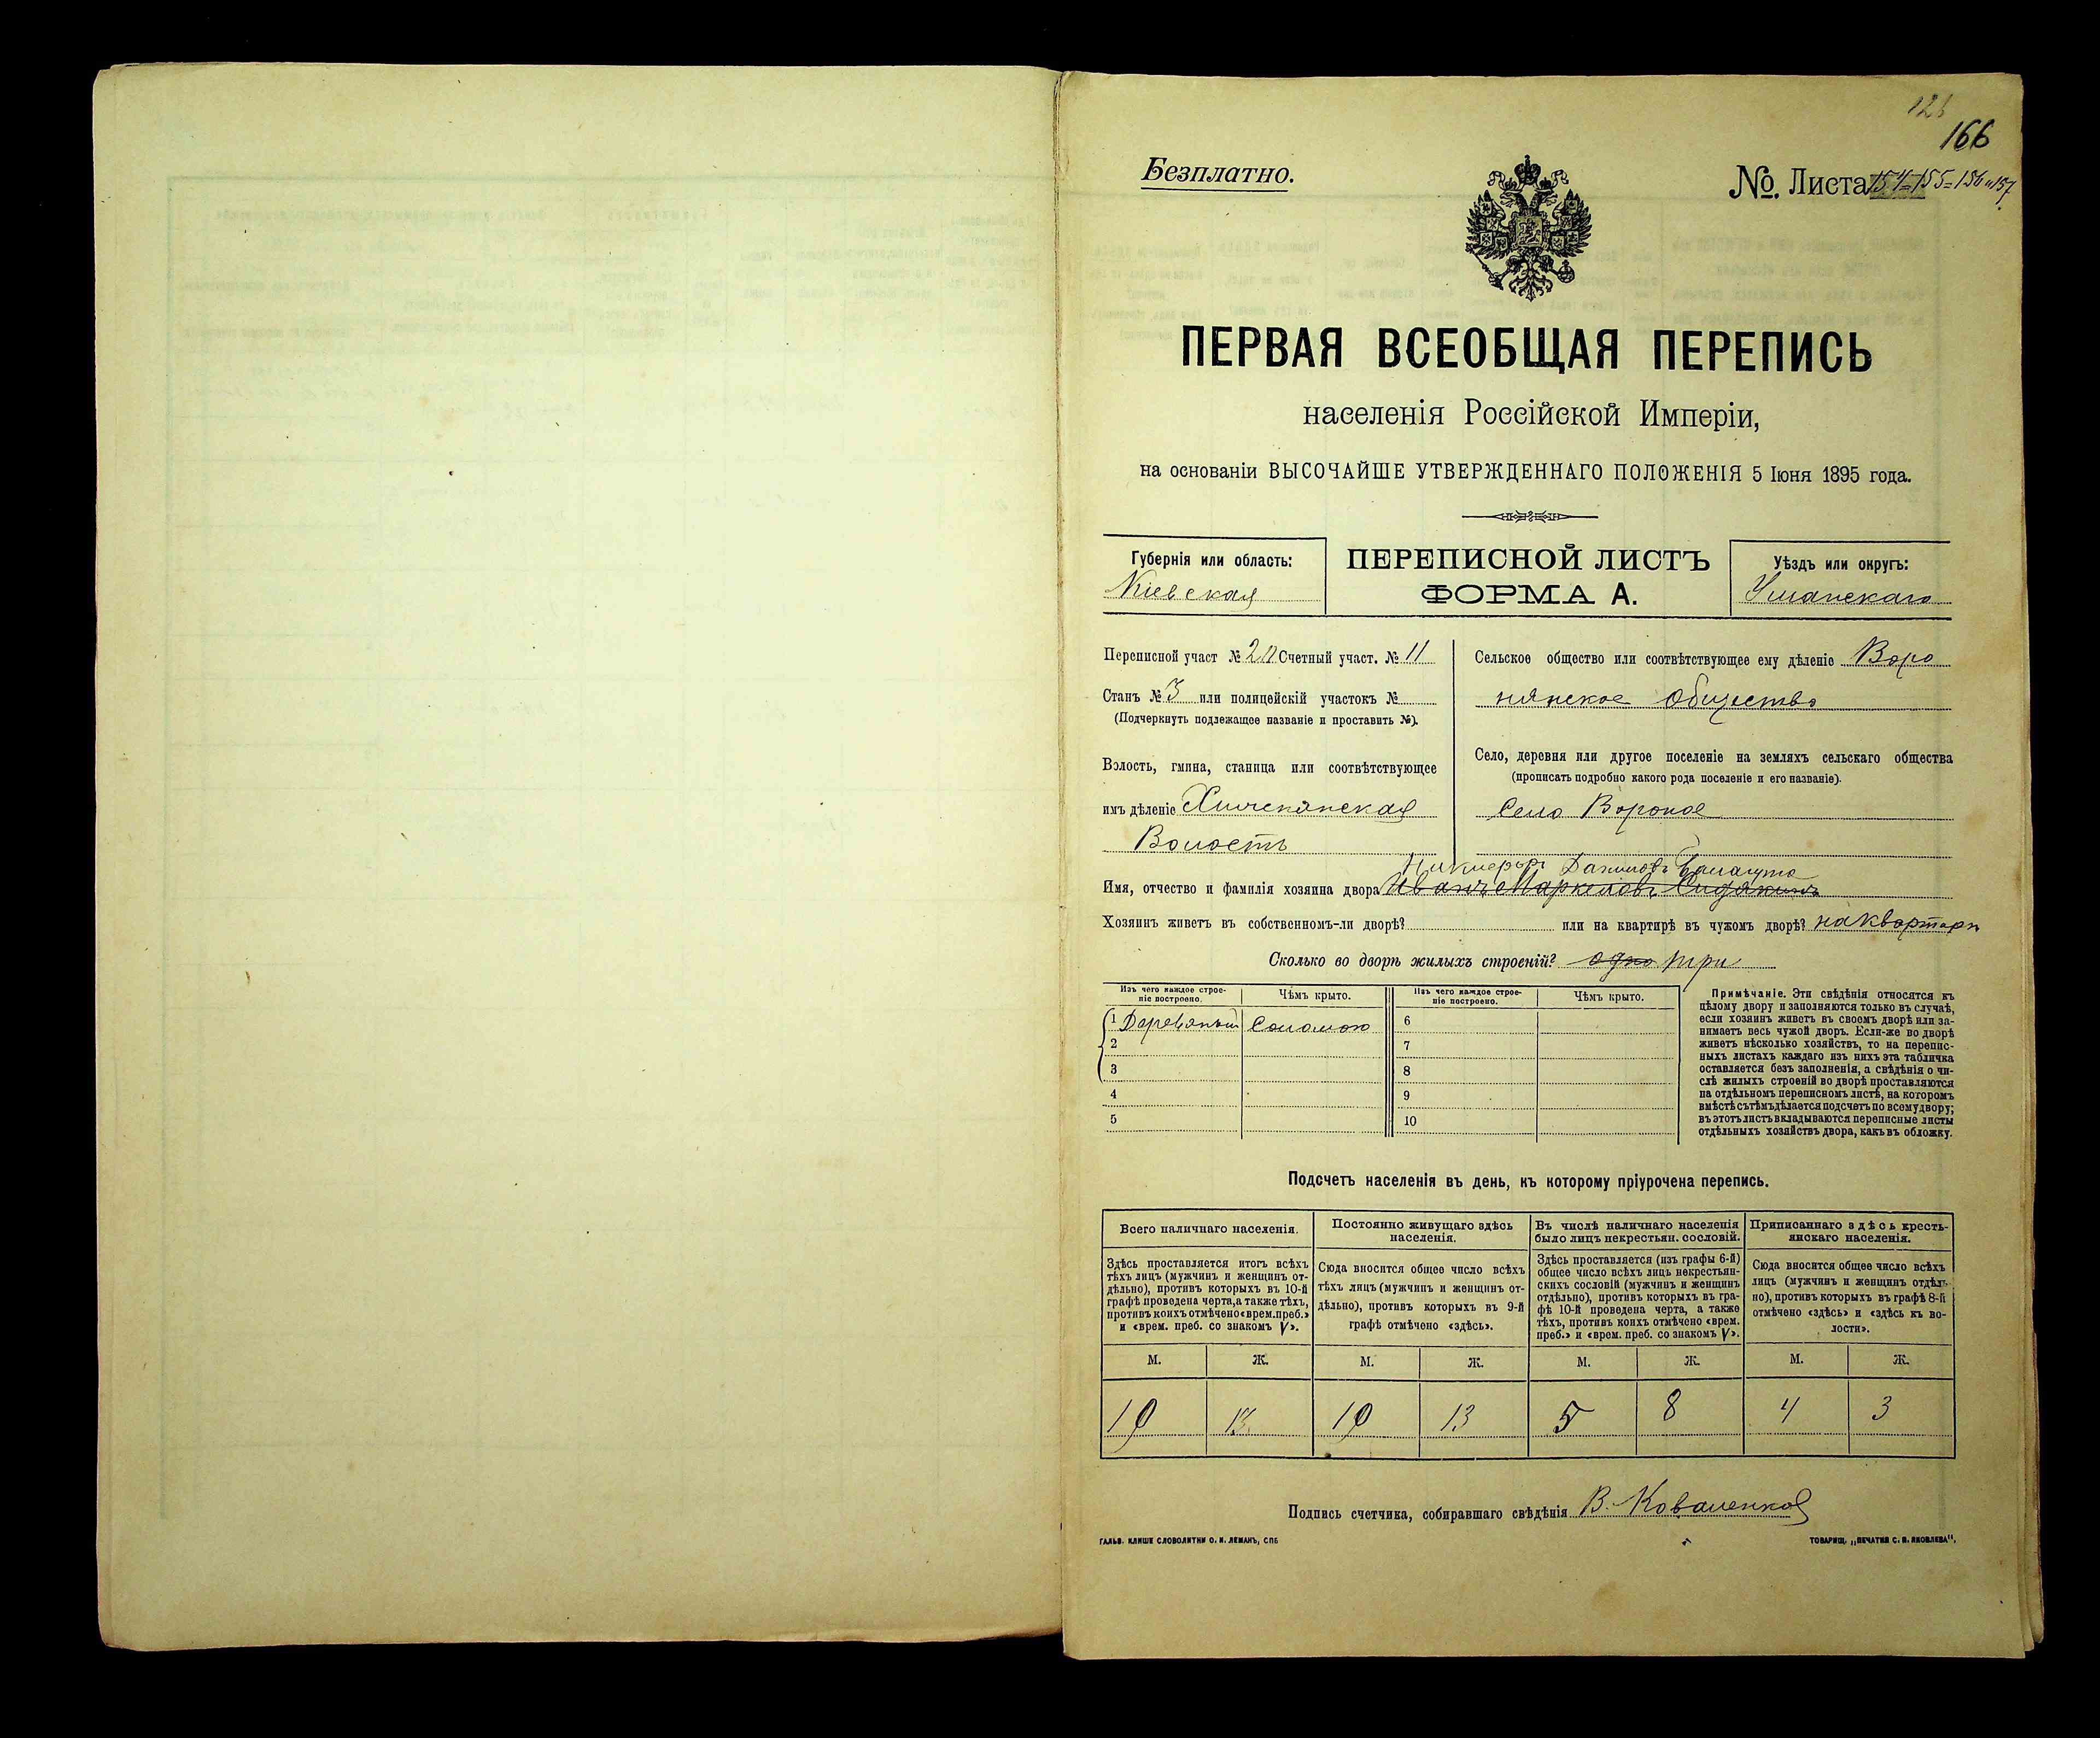 166
Безплатно.
№ Листа 154=155=156 и 157
ПЕРВАЯ ВСЕОБЩАЯ ПЕРЕПИСЬ
населенія Россійской Имперіи,
на основаніи ВЫСОЧАЙШЕ УТВЕРЖДЕННАГО ПОЛОЖЕНІЯ 5 Іюня 1895 года.
Губернія или область:
Кіевская
ПЕРЕПИСНОЙ ЛИСТЪ
ФОРМА А.
Уѣздъ или округъ:
Уманскаго
Переписной участ № Счетный участ. № 11
Станъ № 3 или полицейскій участокъ №
(Подчеркнуть подлежащее названіе и проставить №).
Волость, гмина, станица или соотвѣтствующее
имъ дѣленіе
Волость
Сельское общество или соотвѣтствующее ему дѣленіе Воро
нянское Общество
Село, деревня или другое поселеніе на земляхъ сельскаго общества
(прописать подробно какого рода поселеніе и его названіе).
Село Вороное
Имя, отчество и фамилія хозяина двора Иванъ Маркеловъ
Хозяинъ живетъ въ собственномъ-ли дворѣ? или на квартирѣ въ чужомъ дворѣ?
Сколько во дворѣ жилыхъ строеній? одно три
Изъ чего каждое строе-
ніе построено.
Чѣмъ крыто.
Изъ чего каждое строе-
ніе построено.
Чѣмъ крыто.
1 Соломою 6
2 7
3 8
4 9
5 10
Примѣчаніе. Эти свѣдѣнія относятся къ
цѣлому двору и заполняются только въ случаѣ,
если хозяинъ живетъ въ своемъ дворѣ или за-
нимаетъ весь чужой дворъ. Если-же во дворѣ
живетъ нѣсколько хозяйствъ, то на перепис-
ныхъ листахъ каждаго изъ нихъ эта табличка
оставляется безъ заполненія, а свѣдѣнія о чи-
слѣ жилыхъ строеній во дворѣ проставляются
на отдѣльномъ переписномъ листѣ, на которомъ
вмѣстѣ съ тѣмъ дѣлается подсчетъ по всему двору;
въ этотъ листъ вкладываются переписные листы
отдѣльныхъ хозяйствъ двора, какъ въ обложку.
Подсчетъ населенія въ день, къ которому пріурочена перепись.
Всего наличнаго населенія.
Здѣсь проставляется итогъ всѣхъ
тѣхъ лицъ (мужчинъ и женщинъ от-
дѣльно), противъ которыхъ въ 10-й
графѣ проведена черта, а также тѣхъ,
противъ коихъ отмѣчено «врем. преб.»
и «врем. преб. со знакомъ V».
Постоянно живущаго здѣсь
населенія.
Сюда вносится общее число всѣхъ
тѣхъ лицъ (мужчинъ и женщинъ от-
дѣльно), противъ которыхъ въ 9-й
графѣ отмѣчено «здѣсь».
Въ числѣ наличнаго населенія
было лицъ некрестьян. сословій.
Здѣсь проставляется (изъ графы 6-й)
общее число всѣхъ лицъ некрестьян-
скихъ сословій (мужчинъ и женщинъ
отдѣльно), противъ которыхъ въ гра-
фѣ 10-й проведена черта, а также
тѣхъ, противъ коихъ отмѣчено «врем.
преб.» и «врем. преб. со знакомъ V».
Приписаннаго здѣсь кресть-
янскаго населенія.
Сюда вносится общее число всѣхъ
лицъ (мужчинъ и женщинъ отдѣль-
но), противъ которыхъ въ графѣ 8-й
отмѣчено «здѣсь» и «здѣсь къ во-
лости».
М. Ж. М. Ж. М. Ж. М. Ж.
10 13 10 13 5 8 4 3
Подпись счетчика, собиравшаго свѣдѣнія В. Коваленко
ГАЛЬВ. КЛИШЕ СЛОВОЛИТНИ О. И. ЛЕМАНЪ, СПБ
ТОВАРИЩ. „ПЕЧАТНЯ С. П. ЯКОВЛЕВА".